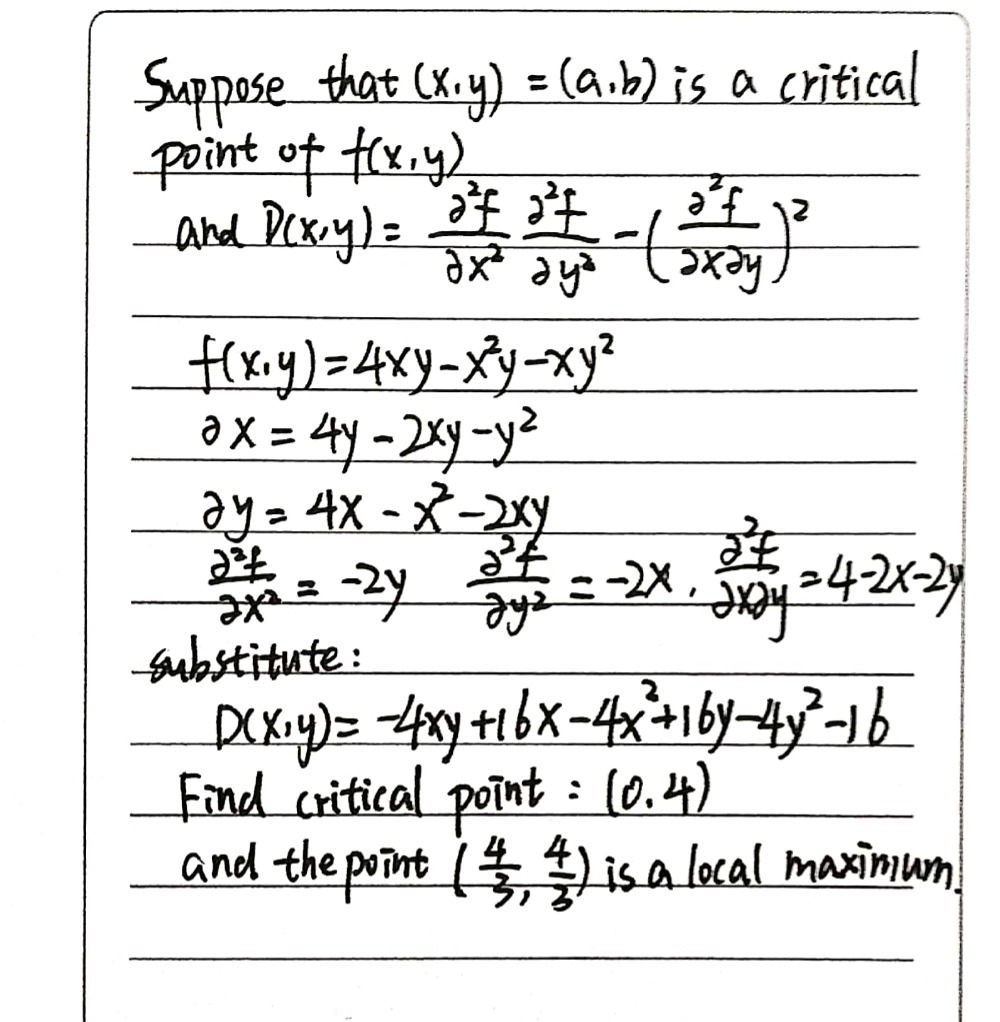 Suppose that (x,y) = (a,b) is a critical
point of f(x,y)
and D(x,y) = ∂²f/∂x² ∂²f/∂y² - (∂²f/∂x∂y)²
f(x,y) = 4xy - x²y - xy²
∂x = 4y - 2xy - y²
∂y = 4x - x² - 2xy
∂²f/∂x² = -2y ∂²f/∂y² = -2x, ∂²f/∂x∂y = 4-2x-2y
substitute:
D(x,y) = -4xy + 16x - 4x² + 16y - 4y² - 16
Find critical point : (0.4)
and the point (4/3, 4/3) is a local maximum.